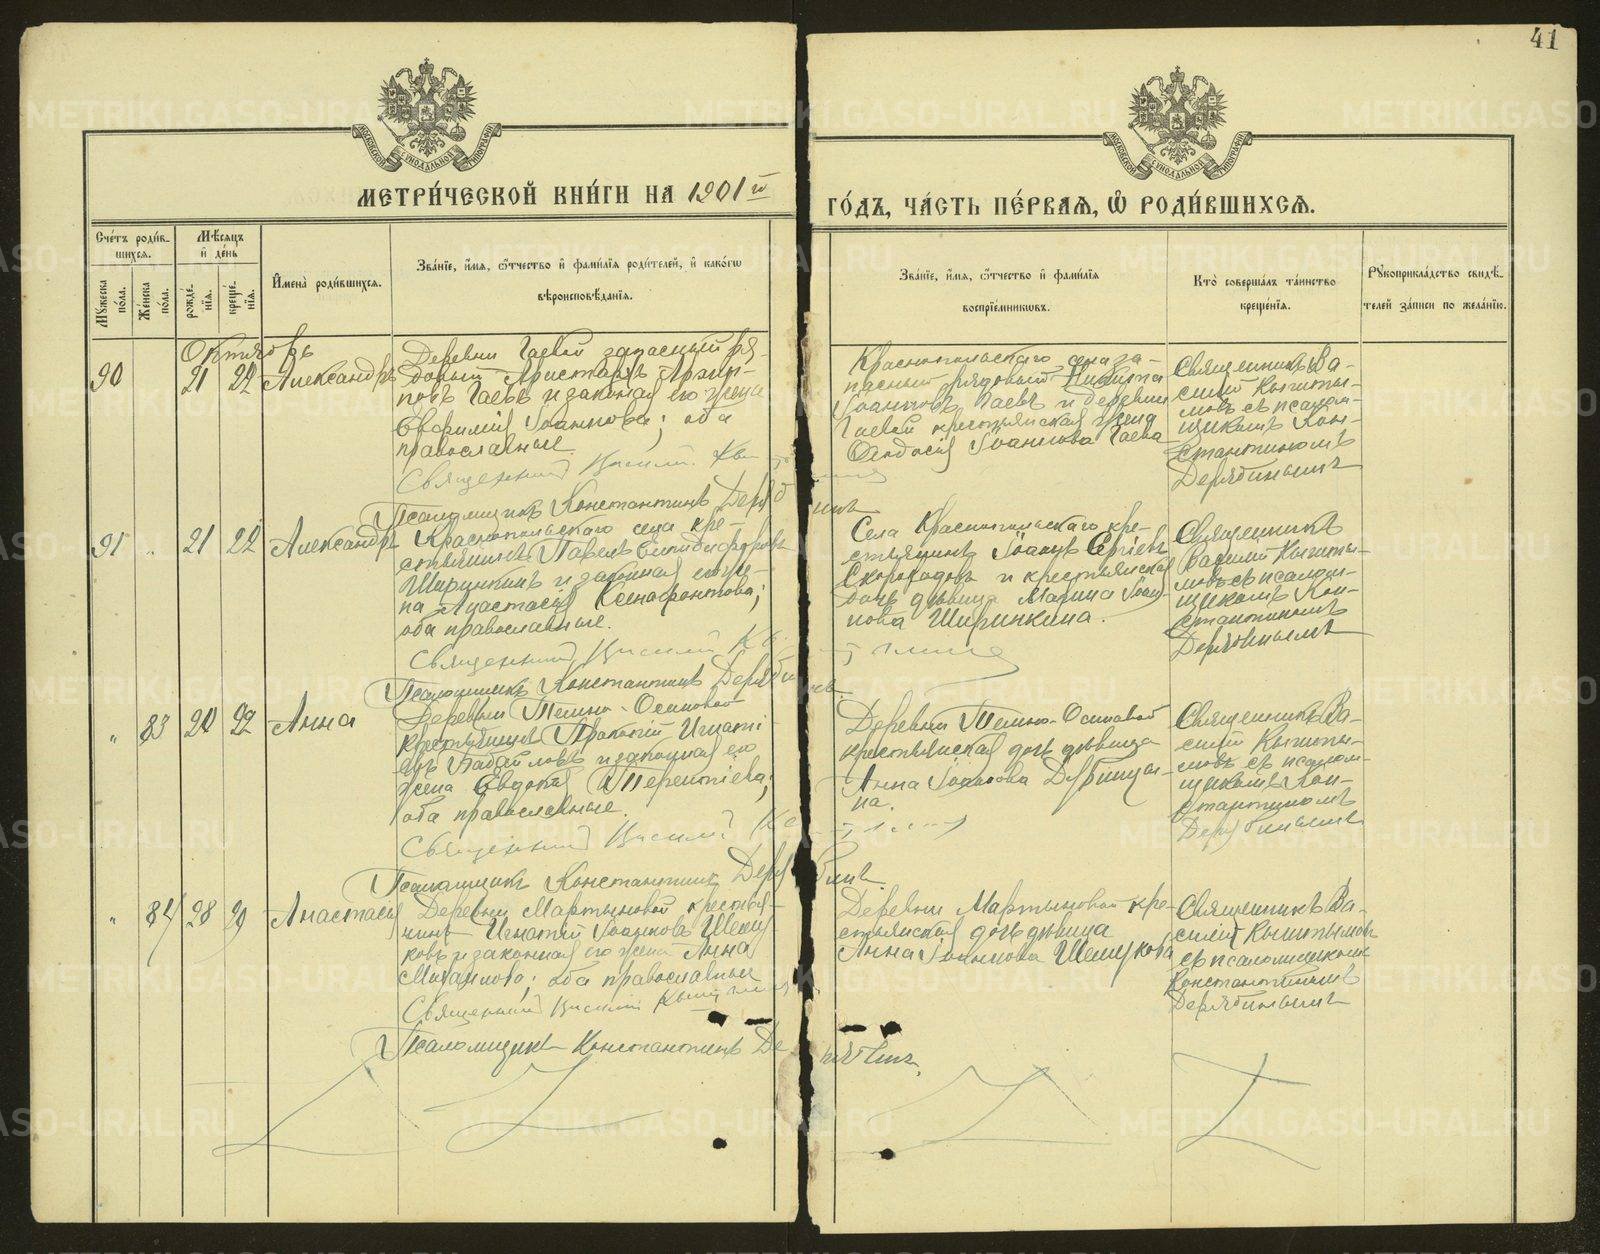 41
МОСКОВСКОЙ СУНОДАЛЬНОЙ ТИПОГРАФІИ
МОСКОВСКОЙ СУНОДАЛЬНОЙ ТИПОГРАФІИ
МЕТРИ́ЧЕСКОЙ КНИ́ГИ НА 1901 й
ГО́ДЪ, ЧА́СТЬ ПЕ́РВАЯ, Ѽ РОДИ́ВШИХСЯ.
Счётъ роди́в-
шихся.
Мꙋжеска по́ла.
Же́нска по́ла.
Мѣсяцъ
и де́нь
рожде́-
нїя.
креще́-
нїя.
Имена̀ роди́вшихся.
Зва́нїе, и́мя, ѻ́тчество и фами́лїя роди́телей, и како́гѡ
вѣроисповѣ́данїя.
Зва́нїе, и́мя, ѻ́тчество и фами́лїя
воспрїе́мниковъ.
Кто̀ соверша́лъ та́инство
креще́нїя.
Рꙋкоприкла́дство свидѣ́-
телей за́писи по жела́нїю.
Октябрь
90 21 22 Александръ
Деревни Гаевой запасный ря-
довой Аристархъ Архип-
повъ Гаевъ и законная его жена
Іоаннова; оба
православные.
Священникъ Василій
Псаломщикъ Константинъ Дерябинъ
Краснопольскаго села за-
пасный рядовой Никита
Іоанновъ Гаевъ и деревни
Гаевой крестьянская жена
Ѳеодосія Іоаннова Гаева
Священникъ Ва-
силій Кышты-
мовъ съ псалом-
щикомъ Кон-
стантиномъ
Дерябинымъ
91 " 21 22 Александръ
Краснопольскаго села кре-
стьянинъ Павелъ Никифоровъ
Ширинкинъ и законная его же-
на Анастасія Ксенофонтова;
оба православные.
Священникъ Василій
Псаломщикъ Константинъ Дерябинъ
Села Краснопольскаго кре-
стьянинъ Іоаннъ Сергіевъ
Скороходовъ и крестьянская
дочь дѣвица Марина Іоан-
нова Ширинкина.
Священникъ
Василій Кышты-
мовъ съ псалом-
щикомъ Кон-
стантиномъ
Дерябинымъ
" 83 20 22 Анна
Деревни Темно-Осиновой
крестьянинъ Прокопій Игнаті-
евъ и законная его
жена Евдокія Терентіева;
оба православные.
Священникъ Василій
Псаломщикъ Константинъ Дерябинъ
Деревни Темно-Осиновой
крестьянская дочь дѣвица
Анна Іоаннова
на.
Священникъ Ва-
силій Кышты-
мовъ съ псалом-
щикомъ Кон-
стантиномъ
Дерябинымъ
" 84 28 29 Анастасія
Деревни Мартыновой крестья-
нинъ Игнатій Іоанновъ Шему-
ковъ и законная его жена Анна
Михаилова; оба православные
Священникъ Василій
Псаломщикъ Константинъ Дерябинъ
Деревни Мартыновой кре-
стьянская дочь дѣвица
Анна Іоаннова Шемукова
Священникъ Ва-
силій Кыштымовъ
съ псаломщикомъ
Константиномъ
Дерябинымъ
METRIKI.GASO-URAL.RU